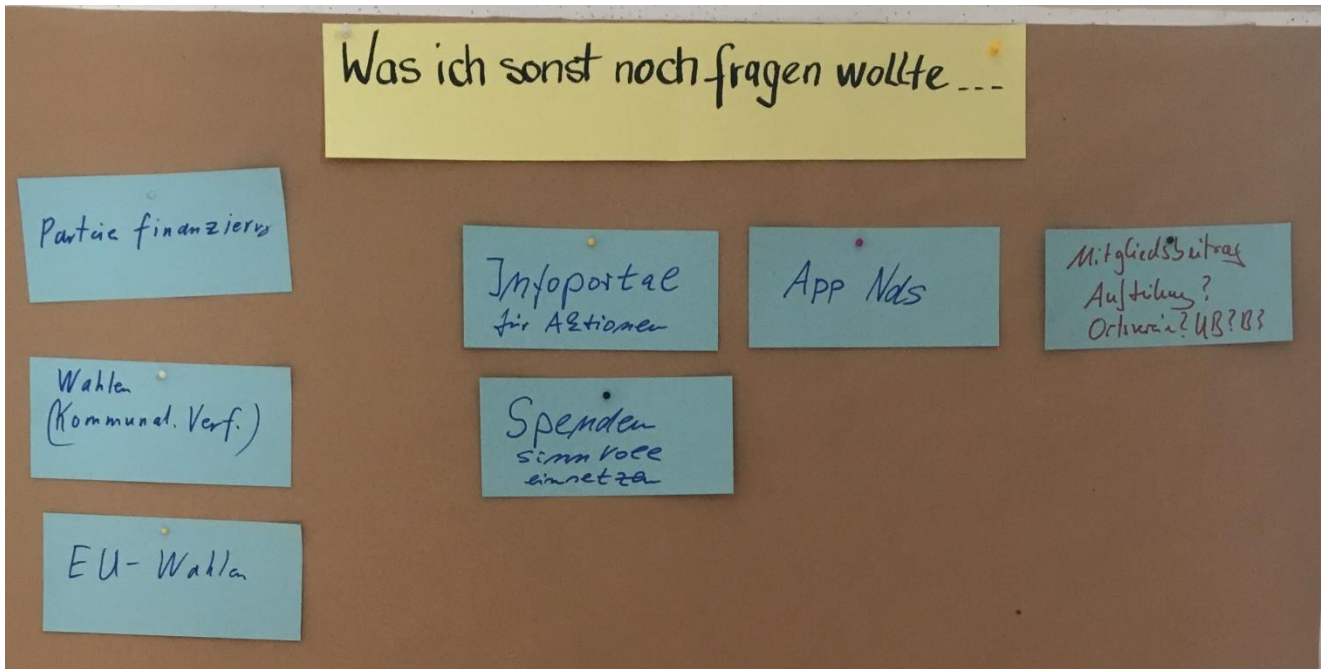 Was ich sonst noch fragen wollte ...
Parteie finanzierung
Wahlen
(Kommunal. Verf.)
EU- Wahlen
Infoportal
für Aktionen
Spenden
sinnvoll
einsetzen
App Nds
Mitgliedsbeitrag
Aufteilung?
Ortsverein? UB? BS